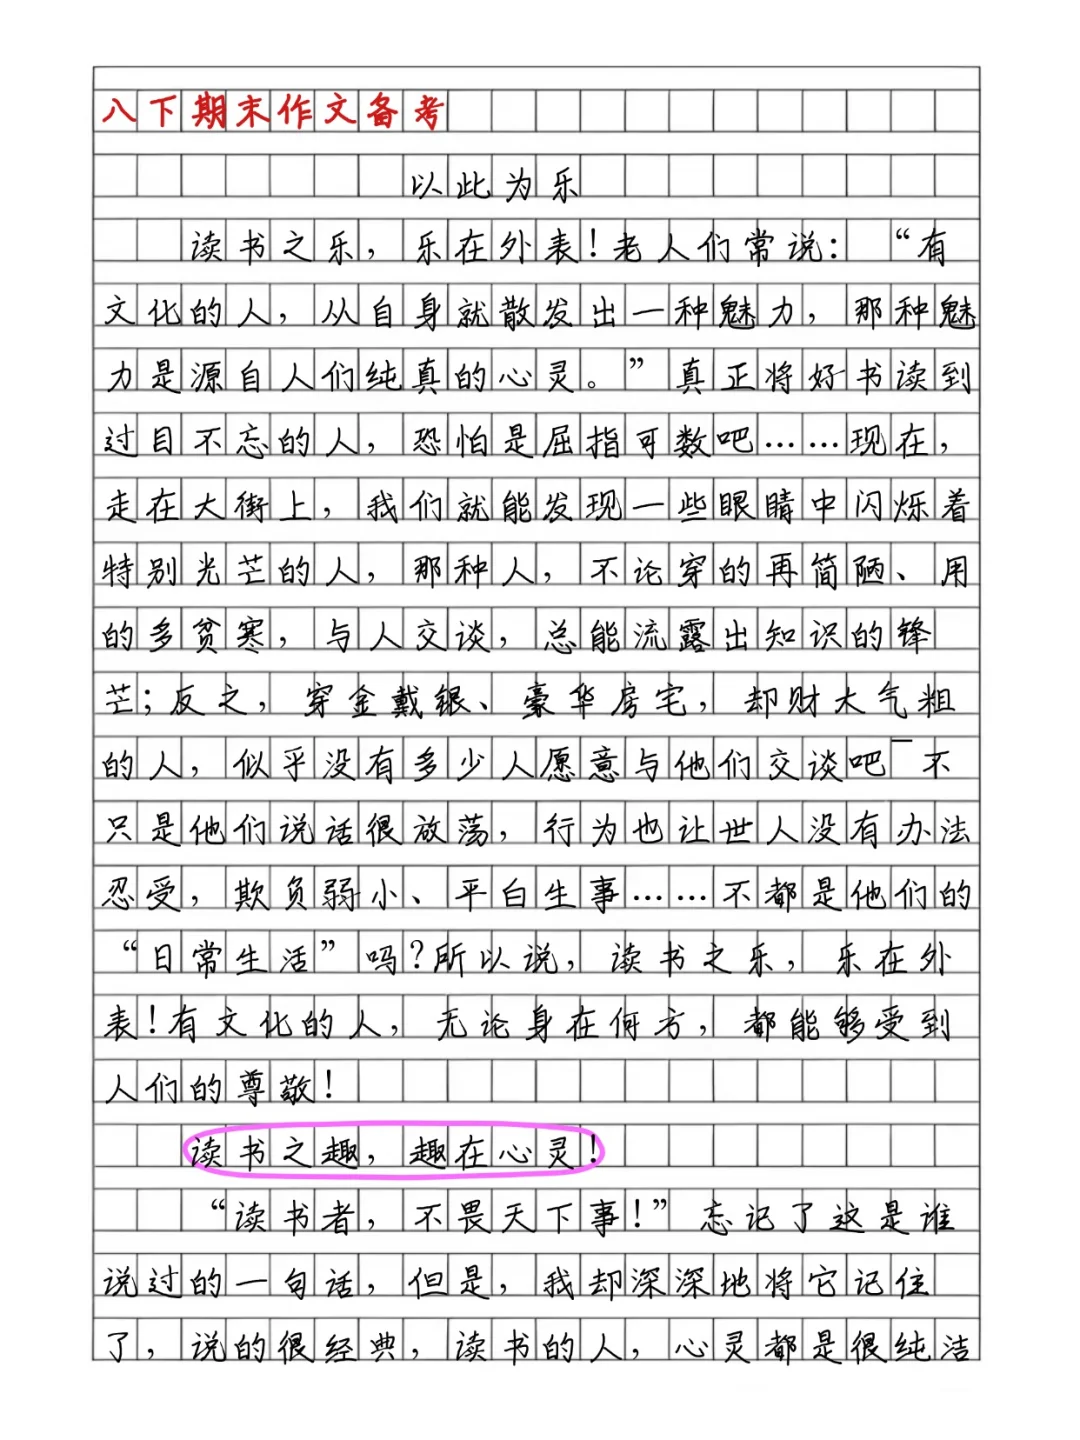 八下期末作文备考
以此为乐
读书之乐，乐在外表！老人们常说：“有
文化的人，从自身就散发出一种魅力，那种魅
力是源自人们纯真的心灵。”真正将好书读到
过目不忘的人，恐怕是屈指可数吧……现在，
走在大街上，我们就能发现一些眼睛中闪烁着
特别光芒的人，那种人，不论穿的再简陋、用
的多贫寒，与人交谈，总能流露出知识的锋
芒；反之，穿金戴银、豪华房宅，却财大气粗
的人，似乎没有多少人愿意与他们交谈吧—不
只是他们说话很放荡，行为也让世人没有办法
忍受，欺负弱小、平白生事……不都是他们的
“日常生活”吗？所以说，读书之乐，乐在外
表！有文化的人，无论身在何方，都能够受到
人们的尊敬！
读书之趣，趣在心灵！
“读书者，不畏天下事！”忘记了这是谁
说过的一句话，但是，我却深深地将它记住
了，说的很经典，读书的人，心灵都是很纯洁